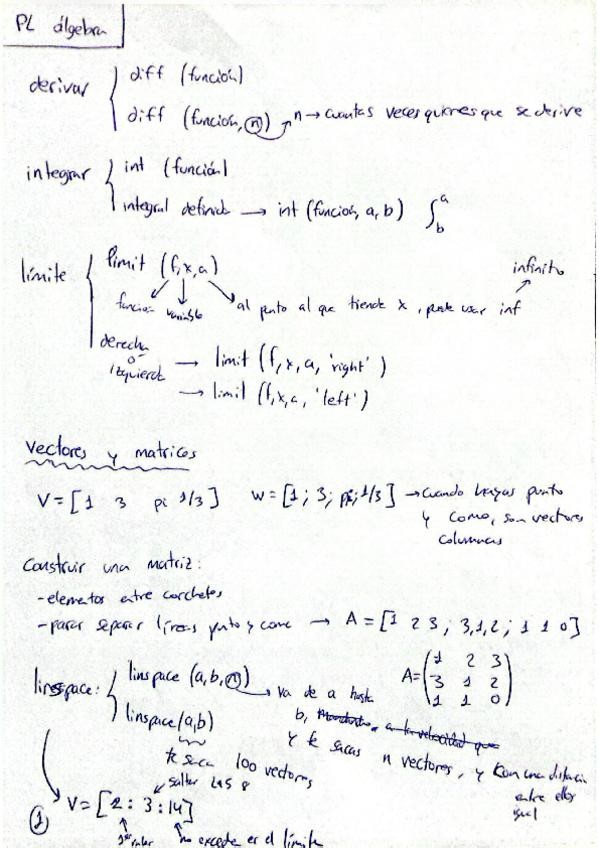 PL álgebra
derivar
diff (función)
diff (función, n) n → cuantas veces quieres que se derive
integrar
int (función)
integral definida → int (función, a, b) ∫ a b
límite
limit (f,x,a)
infinito
función variable al punto al que tiende x, puede usar inf
derecha
o
izquierda
→ limit (f,x,a, 'right')
→ limit (f,x,a, 'left')
Vectores y matrices
V = [1 3 pi 1/3] W = [1; 3; pi; 1/3] → Cuando hayas punto
y coma, son vectores
columnas
Construir una matriz:
- elementos entre corchetes
- para separar líneas punto y coma → A = [1 2 3; 3,1,2; 1 1 0]
A = (1 2 3
3 1 2
1 1 0)
linespace:
linspace (a,b,n) → va de a hasta
b,
linspace (a,b)
y te sacas n vectores, y con una distancia
entre ellos
igual
te saca 100 vectores
saltar
① V = [2 : 3 : 14]
1er valor no excede es el límite